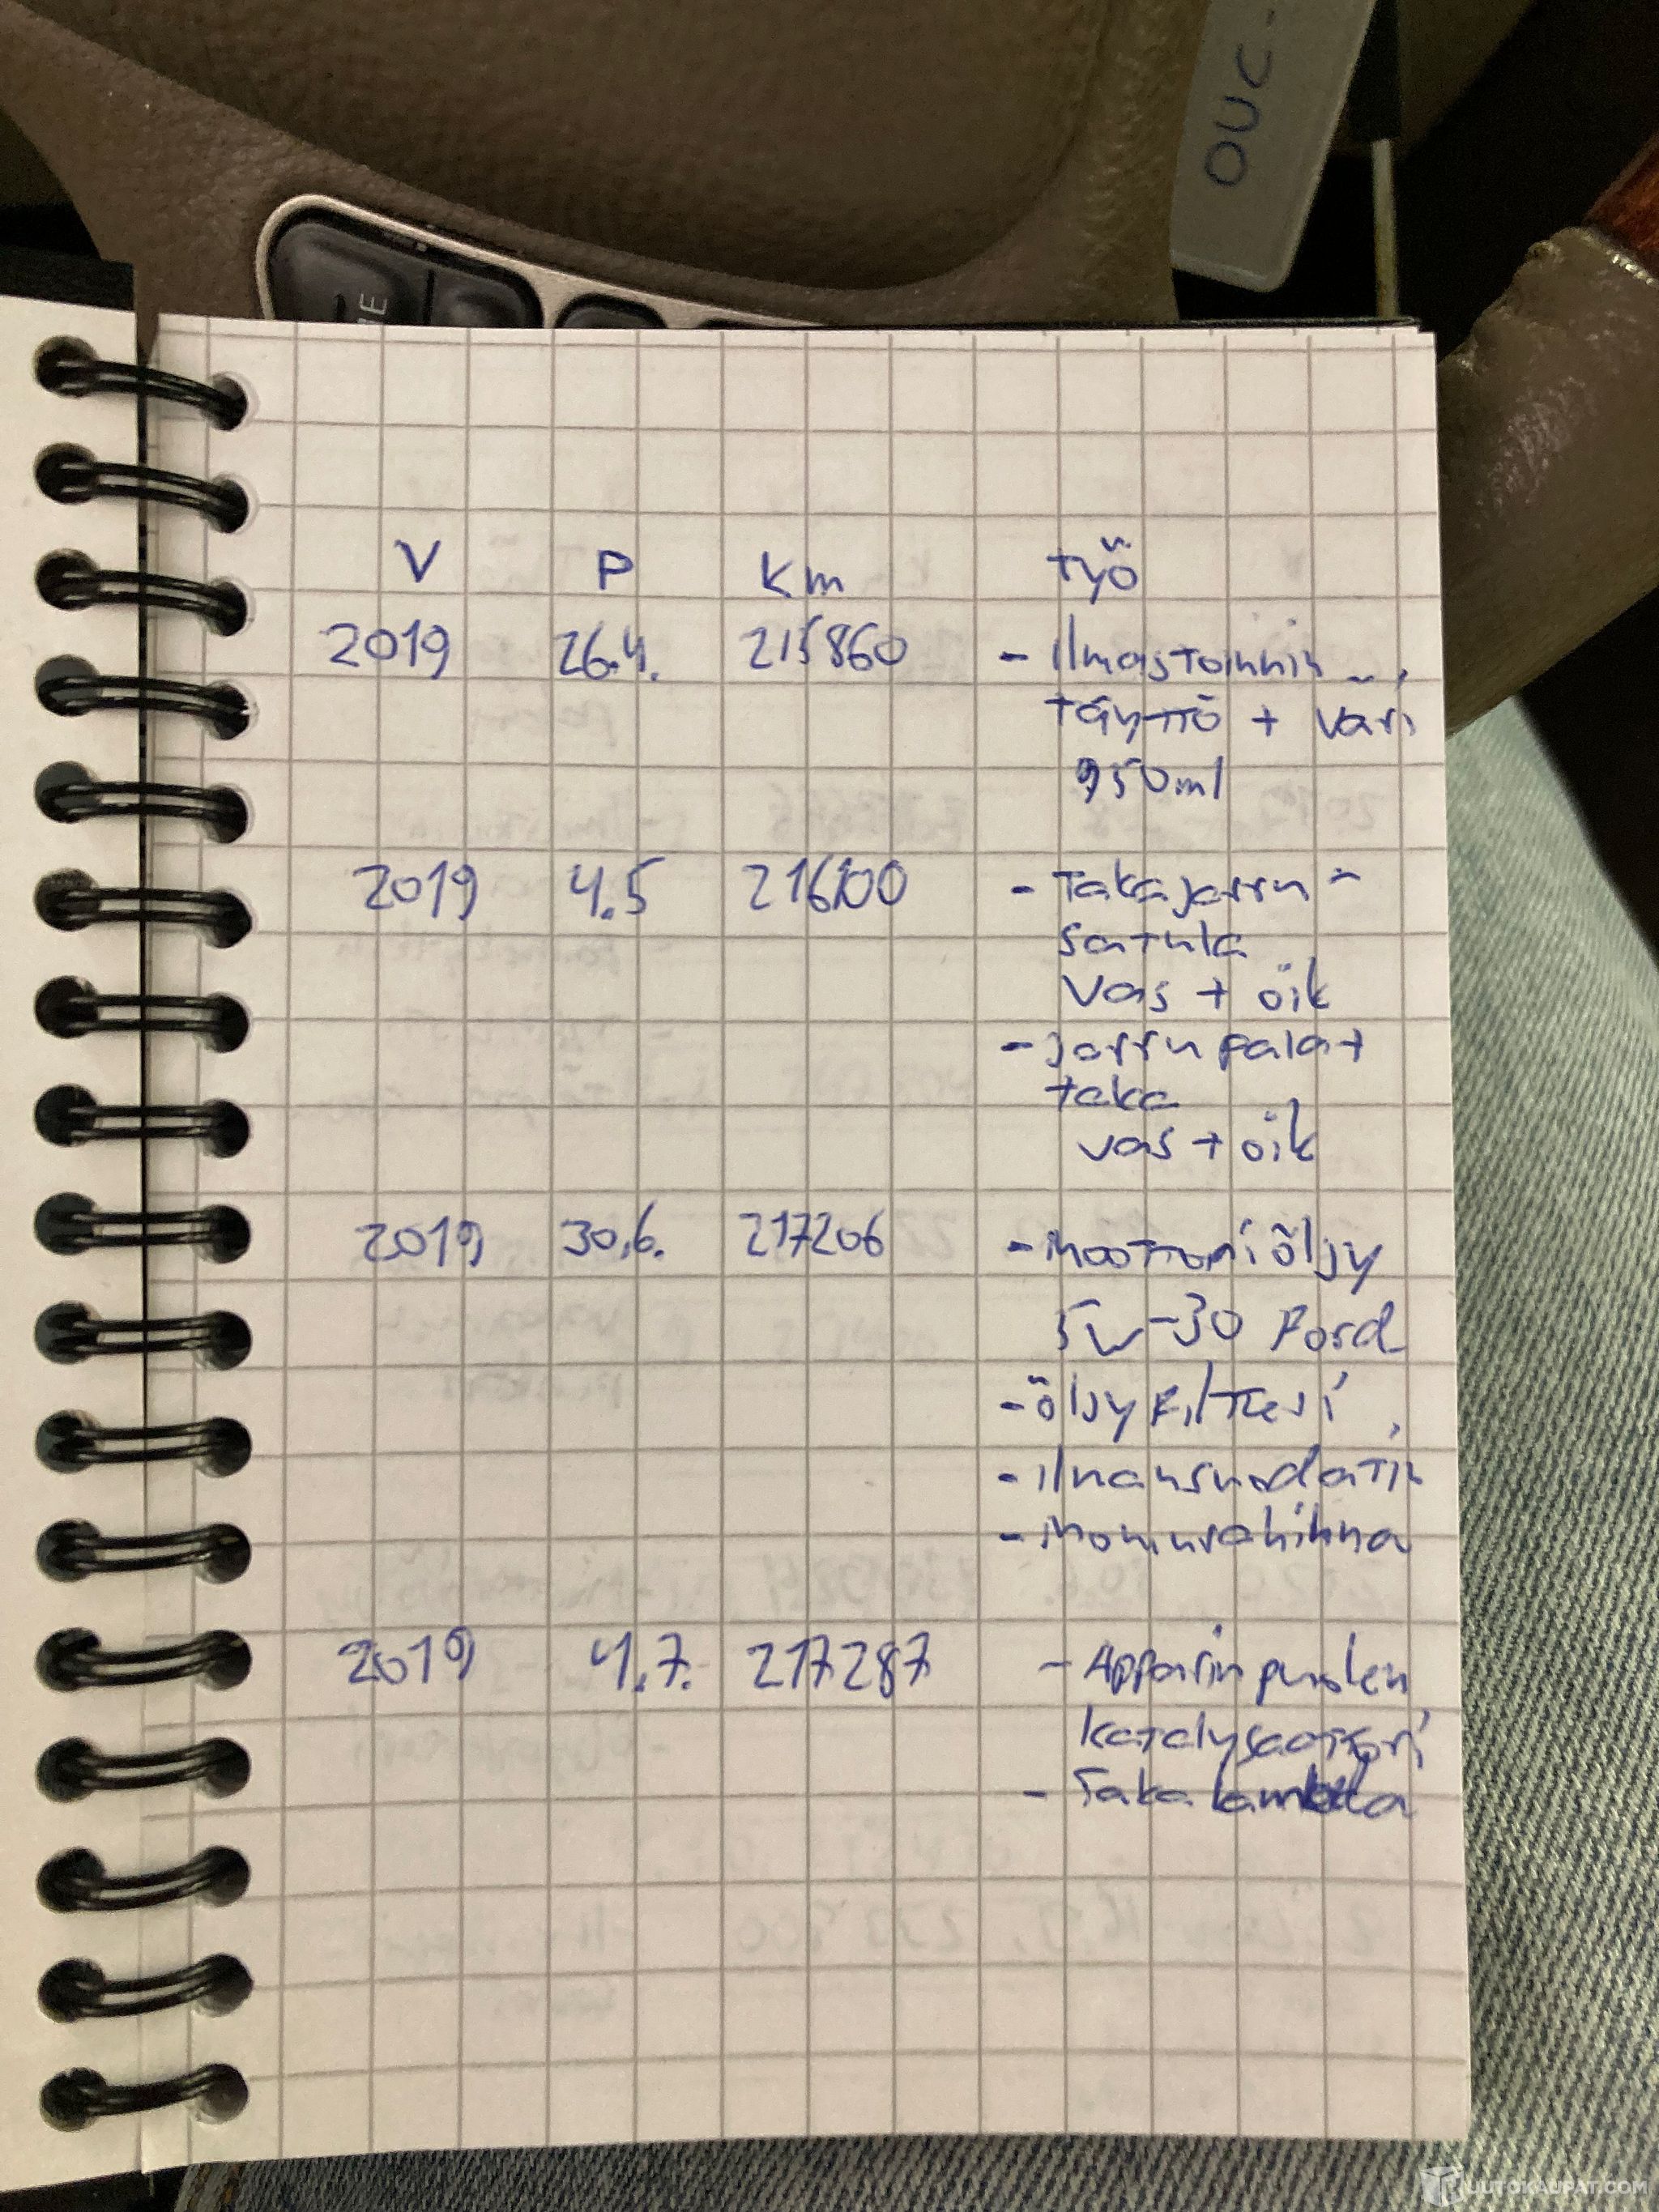 OUC-
ME
V P Km työ
2019 26.4. 215860 - Ilmastoinnin
täyttö + väri
950ml
2019 4.5 216100 - Takajarru-
satula
vas + oik
- jarrupalat
taka
vas + oik
2019 30.6. 217206 - moottoriöljy
5w-30 Ford
- öljyfiltteri
- ilmansuodatin
- moniurahihna
2019 4.7. 217287 - Apparin puolen
katalysaattori
- Taka lambda
UUTOKAUPAT.COM